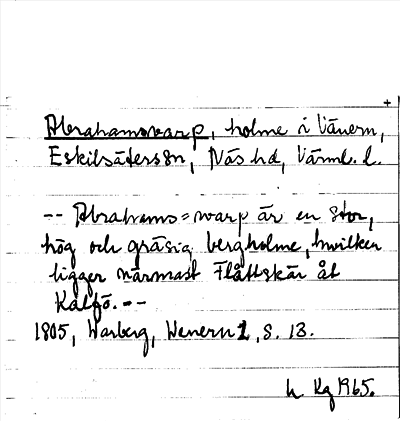 +
Abrahamswarp, holme i Vänern,
Eskilsäters sn, Näs hd, Värml. l.
-- Abrahams=warp är en stor,
hög och gräsig bergholme, hwilken
ligger närmast Flåttskär åt
Kalfö. --
1805, Warberg, Wenern 1, s. 13.
Kg 1965.